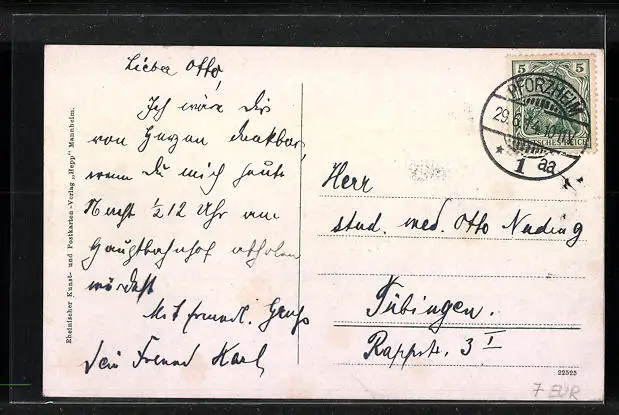 Lieber Otto,
Ich wäre dir
von Herzen dankbar,
wenn Du mich heute
Nacht ½12 Uhr am
Hauptbahnhof abholen
würdest
Mit freundl. Gruß
Dein Freund Karl
Rheinischer Kunst- und Postkarten-Verlag „Hepp" Mannheim.
5 5
PFORZHEIM
29.6.14.10-11V
* 1 aa
DEUTSCHES REICH
Herr
stud. med. Otto Nading
Tübingen.
Rappstr. 3 I
22525
7 EUR